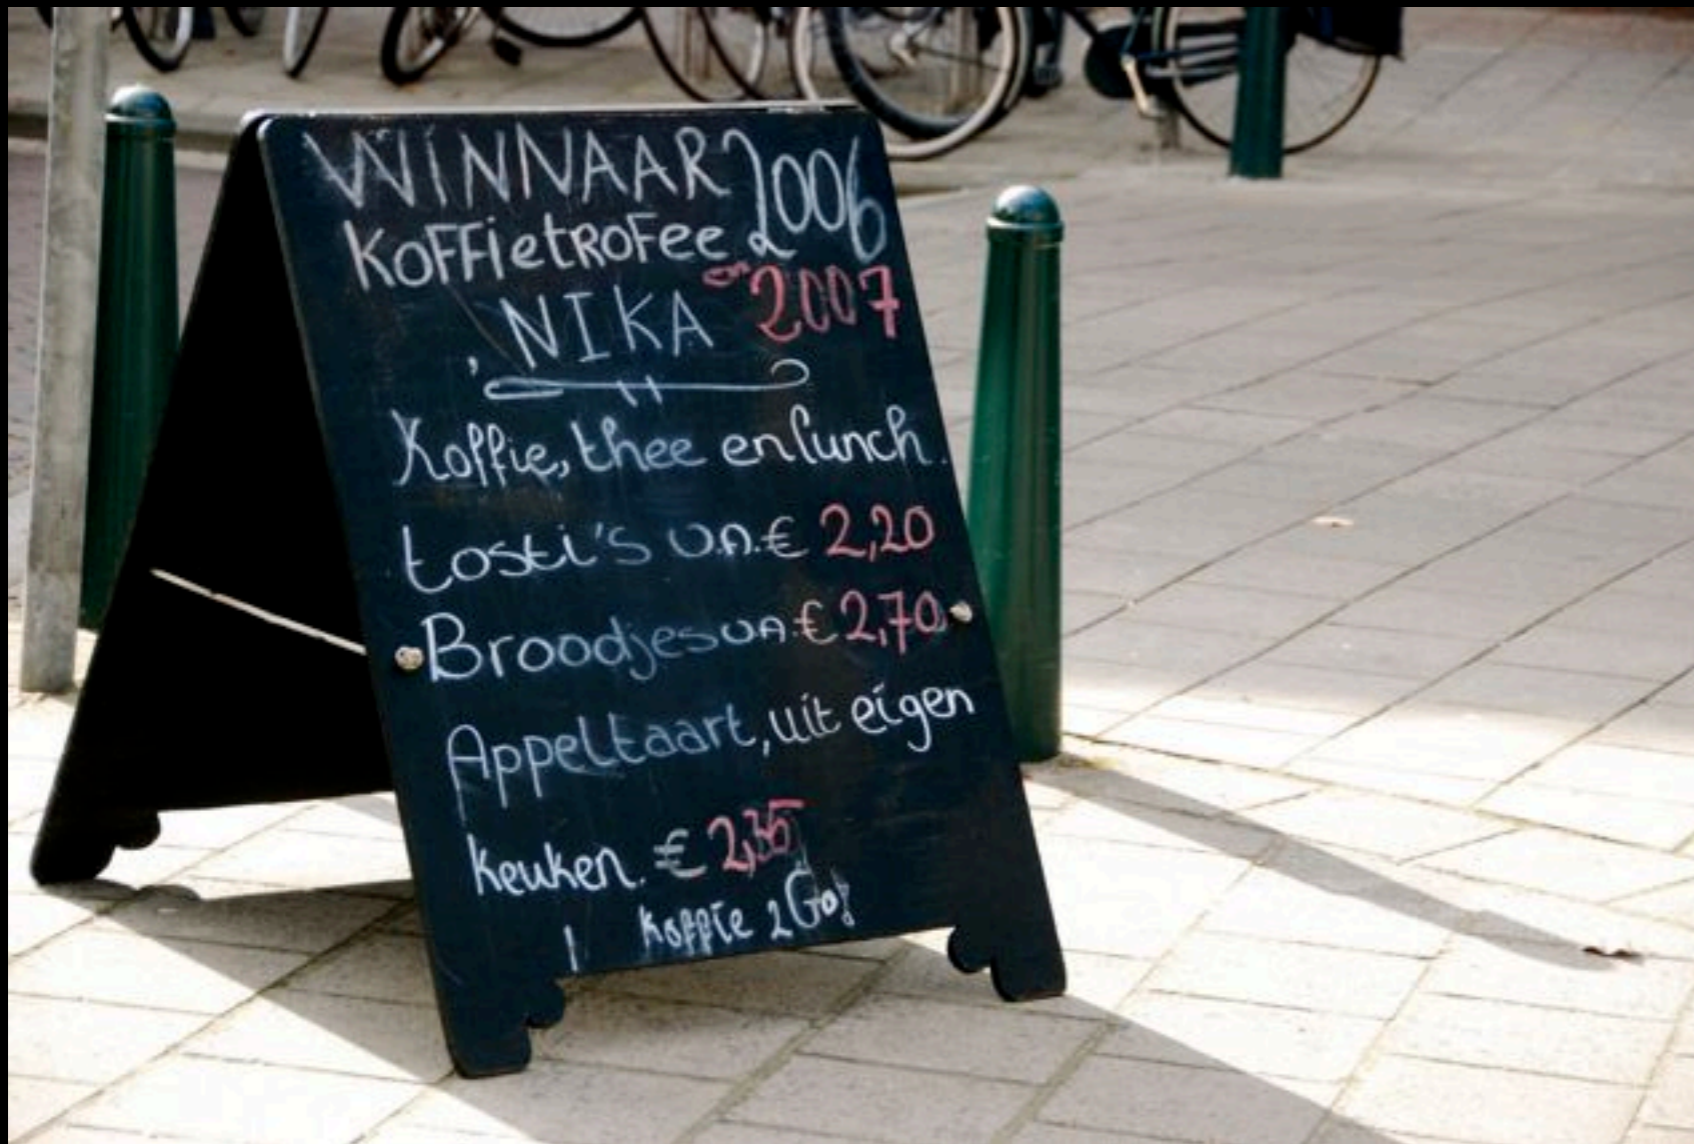 WINNAAR 2006
KOFFIETROFEE
en 2007
NIKA
Koffie, thee en lunch.
tosti's v.a. € 2,20
Broodjes v.a. € 2,70
Appeltaart, uit eigen
keuken. € 2,35
Koffie 2Go!